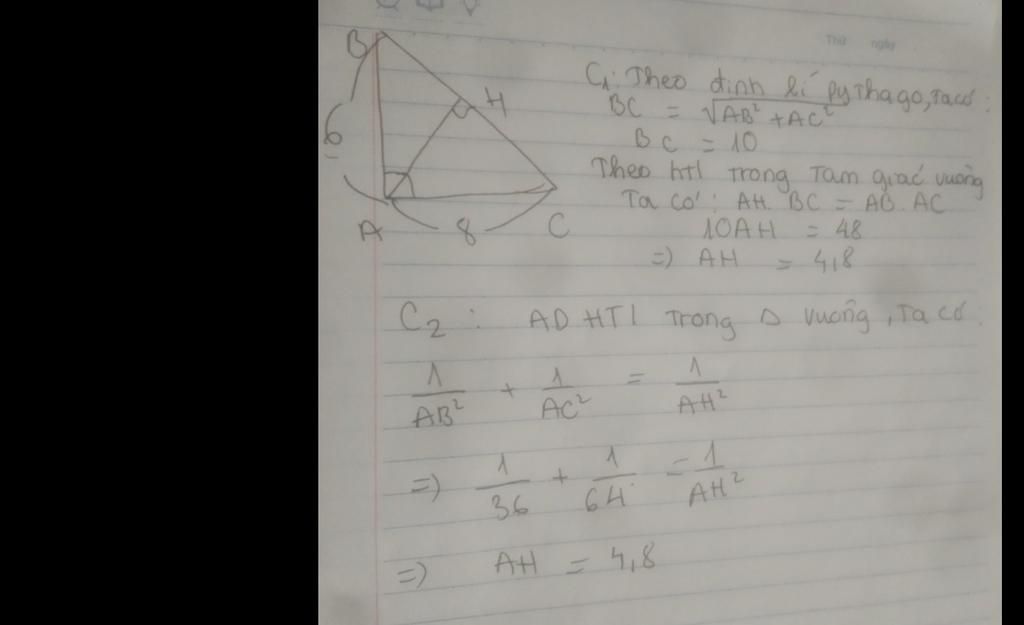 Thứ ngày
B
H
6
A
8
C
C1: Theo định lí pythago, ta có:
BC = √AB² + AC²
BC = 10
Theo htl trong Tam giác vuông
Ta có: AH. BC = AB. AC
10AH = 48
=) AH = 4,8
C2: AD HTL Trong Δ vuông, Ta có:
1/AB² + 1/AC² = 1/AH²
=) 1/36 + 1/64 = 1/AH²
=) AH = 4,8